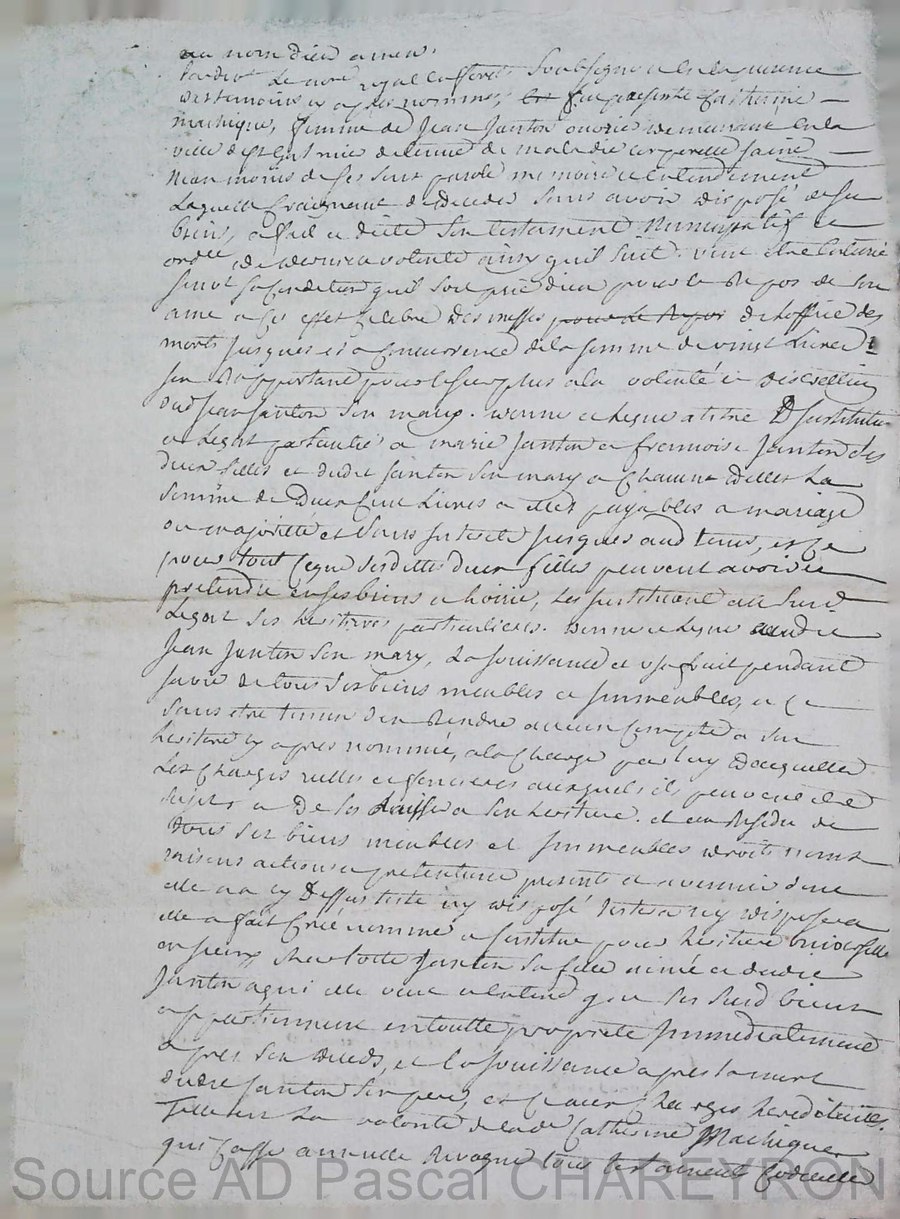 au nom dieu amen,
pardevt Le nore royal Soussigné et En la presence
des temoins cy apres nommes, fut presente Catherine
machique, femme de Jean Janton ouvrie demeurant En la
ville de St Galmie detenue de maladie corporelle saine
neanmoins de ses sens parole memoire et Entendement
Laquelle craignant de deceder sans avoir disposé de ses
biens, a fait et dicté son testament nuncupatif et
ordre de derniere volonté ainsy quil suit. veut etre Enterré
selon sa Condition quil soit prié dieu pour le Repos de son
ame a cet effet celebré des messes pour le Repos de Loffice des
morts jusques et a Concurrence de la somme de vingt Livres
sen Rapportant pour le surplus a la volonté et discretion
dud Jean Janton son mary. donne et legue a titre D Institution
et Legat particulié a marie Janton et francoise Janton ses
deux filles et dudit Janton son mary a Chacune delles La
somme de Deux Cent Livres a elles payables a mariage
ou majorité et sans Interets jusques aud tems, et Ce
pour tout Ceque sesdittes deux filles peuvent avoir et
pretendre en ses biens et hoirie, Les Instituant aud
Legat ses heritieres particulieres. donne et legue audit
Jean Janton son mary, La jouissance et usufruit pendant
sa vie de tous ses biens meubles et Immeubles, et ce
sans etre tenu d'en Rendre aucun Compte a son
heritiere cy apres nommée, a la Charge par luy dacquitter
Les Charges reelles et foncieres auxquels ils peuvent etre
sujets et De les a son heritiere. et au Residu de
tous ses biens meubles et Immeubles droits noms
raisons actions et pretentions presents et avenir dont
elle na cy Dessus testé ny disposé testera ny disposera
elle a fait Créé nommé et Institue pour heritiere universelle
Janton sa fille ainée et dudit
Janton a qui elle veut et Entend que ses biens
appartiennent en toutte propriete Immediatement
apres son deceds, et la jouissance apres la mort
dudit Janton son pere, et Charges hereditaires.
Telle est La volonté de lade Catherine Machique
qui Casse annulle Revoque tous testaments Codicille
Source AD Pascal CHAREYRON